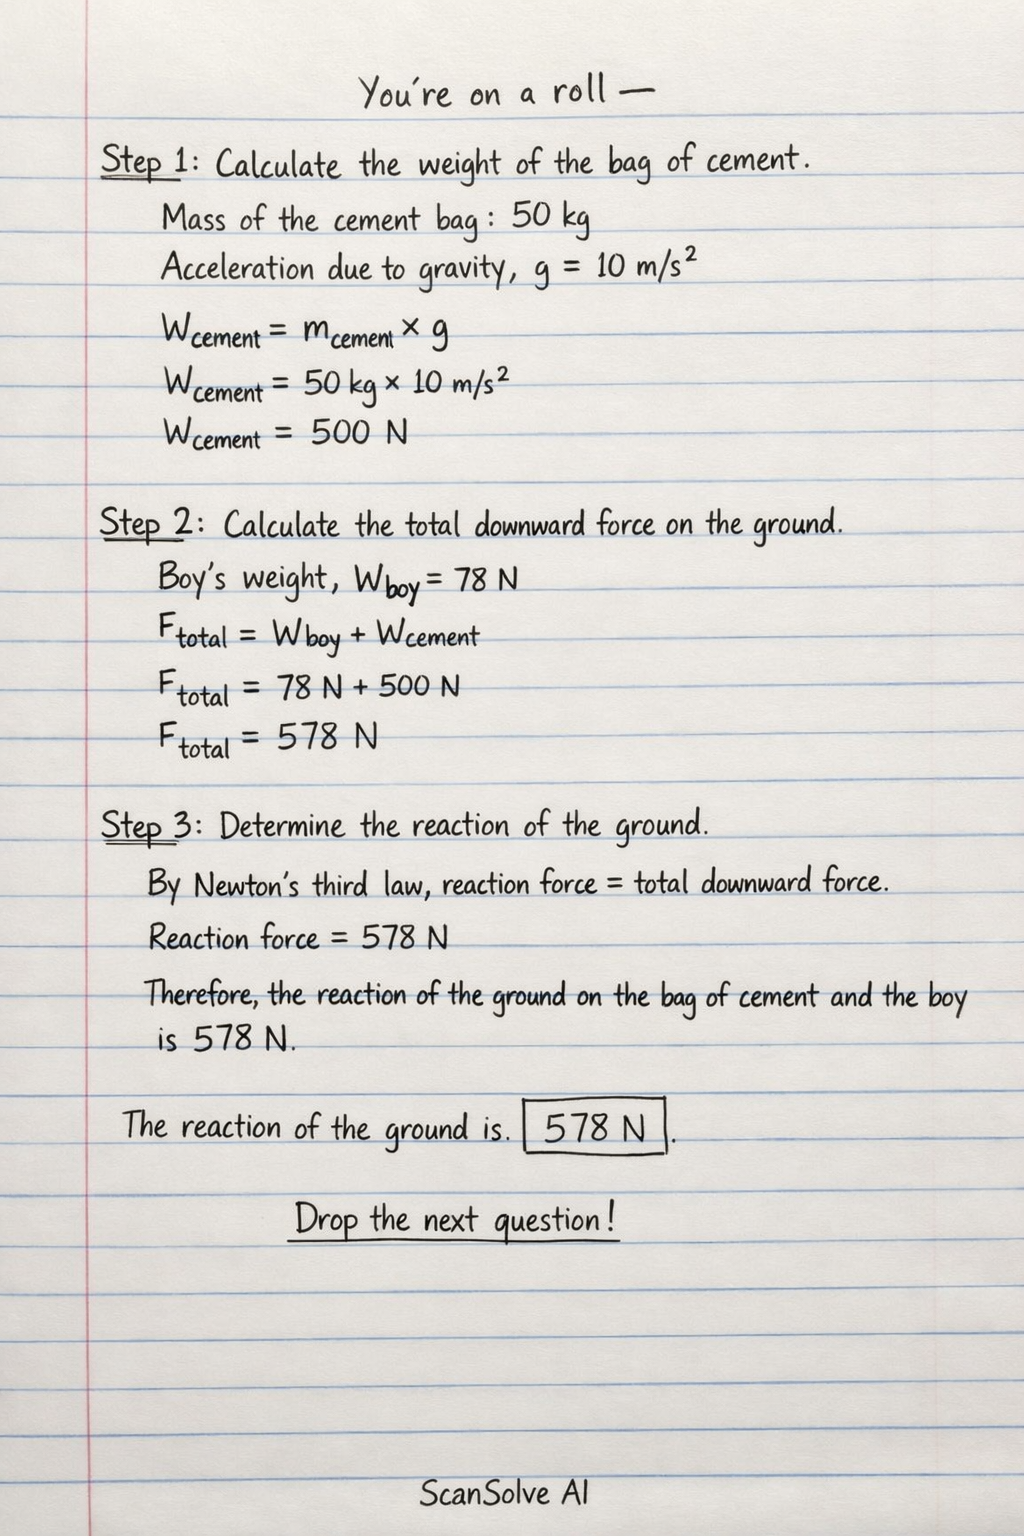 You're on a roll —
Step 1: Calculate the weight of the bag of cement.
Mass of the cement bag: 50 kg
Acceleration due to gravity, g = 10 m/s²
Wcement = mcement × g
Wcement = 50 kg × 10 m/s²
Wcement = 500 N
Step 2: Calculate the total downward force on the ground.
Boy's weight, Wboy = 78 N
Ftotal = Wboy + Wcement
Ftotal = 78 N + 500 N
Ftotal = 578 N
Step 3: Determine the reaction of the ground.
By Newton's third law, reaction force = total downward force.
Reaction force = 578 N
Therefore, the reaction of the ground on the bag of cement and the boy
is 578 N.
The reaction of the ground is. 578 N.
Drop the next question!
ScanSolve AI